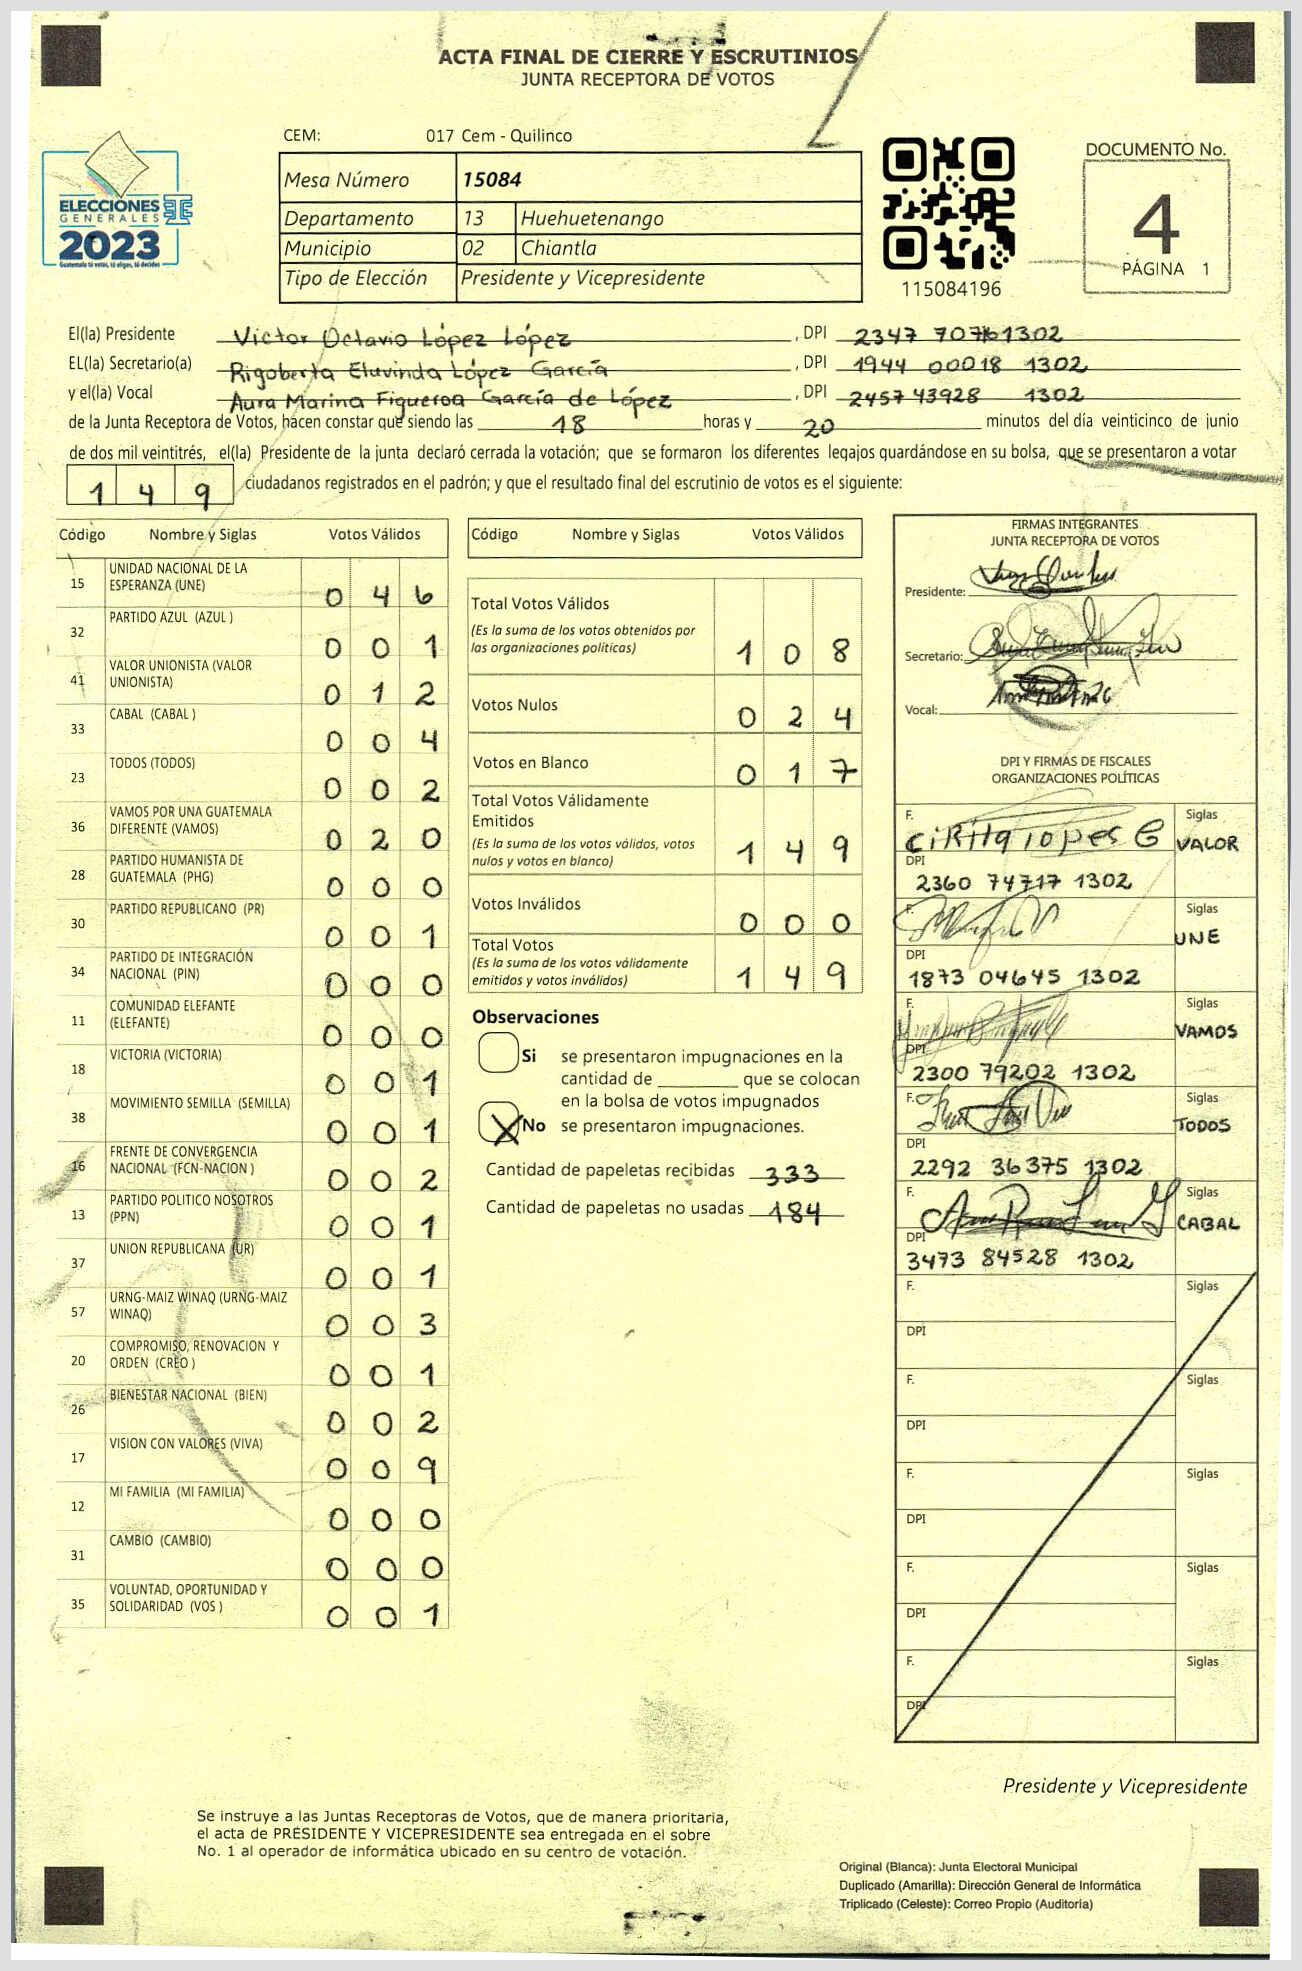 ACTA FINAL DE CIERRE Y ESCRUTINIOS
JUNTA RECEPTORA DE VOTOS
CEM: 017 Cem - Quilinco
ELECCIONES
GENERALES
2023
Guatemala tú votas, tú eliges, tú decides
Mesa Número 15084
Departamento 13 Huehuetenango
Municipio 02 Chiantla
Tipo de Elección Presidente y Vicepresidente
115084196
DOCUMENTO No.
4
PÁGINA 1
El(la) Presidente Victor Octavio López López , DPI 2347 1302
EL(la) Secretario(a) Rigoberta Eluvinda López García , DPI 1944 00018 1302
y el(la) Vocal Aura Marina Figueroa García de López , DPI 2457 43928 1302
de la Junta Receptora de Votos, hacen constar que siendo las 18 horas y 20 minutos del día veinticinco de junio
de dos mil veintitrés, el(la) Presidente de la junta declaró cerrada la votación; que se formaron los diferentes legajos guardándose en su bolsa, que se presentaron a votar
1 4 9 ciudadanos registrados en el padrón; y que el resultado final del escrutinio de votos es el siguiente:
Código Nombre y Siglas Votos Válidos
15 UNIDAD NACIONAL DE LA
ESPERANZA (UNE) 0 4 6
32 PARTIDO AZUL (AZUL ) 0 0 1
41 VALOR UNIONISTA (VALOR
UNIONISTA) 0 1 2
33 CABAL (CABAL ) 0 0 4
23 TODOS (TODOS) 0 0 2
36 VAMOS POR UNA GUATEMALA
DIFERENTE (VAMOS) 0 2 0
28 PARTIDO HUMANISTA DE
GUATEMALA (PHG) 0 0 0
30 PARTIDO REPUBLICANO (PR) 0 0 1
34 PARTIDO DE INTEGRACIÓN
NACIONAL (PIN) 0 0 0
11 COMUNIDAD ELEFANTE
(ELEFANTE) 0 0 0
18 VICTORIA (VICTORIA) 0 0 1
38 MOVIMIENTO SEMILLA (SEMILLA) 0 0 1
16 FRENTE DE CONVERGENCIA
NACIONAL (FCN-NACION ) 0 0 2
13 PARTIDO POLITICO NOSOTROS
(PPN) 0 0 1
37 UNION REPUBLICANA (UR) 0 0 1
57 URNG-MAIZ WINAQ (URNG-MAIZ
WINAQ) 0 0 3
20 COMPROMISO, RENOVACION Y
ORDEN (CREO ) 0 0 1
26 BIENESTAR NACIONAL (BIEN) 0 0 2
17 VISION CON VALORES (VIVA) 0 0 9
12 MI FAMILIA (MI FAMILIA) 0 0 0
31 CAMBIO (CAMBIO) 0 0 0
35 VOLUNTAD, OPORTUNIDAD Y
SOLIDARIDAD (VOS ) 0 0 1
Código Nombre y Siglas Votos Válidos
Total Votos Válidos
(Es la suma de los votos obtenidos por
las organizaciones políticas) 1 0 8
Votos Nulos 0 2 4
Votos en Blanco 0 1 7
Total Votos Válidamente
Emitidos
(Es la suma de los votos válidos, votos
nulos y votos en blanco) 1 4 9
Votos Inválidos 0 0 0
Total Votos
(Es la suma de los votos válidamente
emitidos y votos inválidos) 1 4 9
Observaciones
Si se presentaron impugnaciones en la
cantidad de ________ que se colocan
en la bolsa de votos impugnados
X No se presentaron impugnaciones.
Cantidad de papeletas recibidas 333
Cantidad de papeletas no usadas 184
FIRMAS INTEGRANTES
JUNTA RECEPTORA DE VOTOS
Presidente:
Secretario:
Vocal:
DPI Y FIRMAS DE FISCALES
ORGANIZACIONES POLÍTICAS
F. Siglas
CiRila lopes G VALOR
DPI
2360 74717 1302
F. Siglas
UNE
DPI
1873 04645 1302
F. Siglas
VAMOS
DPI
2300 79202 1302
F. Siglas
TODOS
DPI
2292 36375 1302
F. Siglas
CABAL
DPI
3473 84528 1302
F. Siglas
DPI
F. Siglas
DPI
F. Siglas
DPI
F. Siglas
DPI
F. Siglas
DPI
Presidente y Vicepresidente
Se instruye a las Juntas Receptoras de Votos, que de manera prioritaria,
el acta de PRESIDENTE Y VICEPRESIDENTE sea entregada en el sobre
No. 1 al operador de informática ubicado en su centro de votación.
Original (Blanca): Junta Electoral Municipal
Duplicado (Amarilla): Dirección General de Informática
Triplicado (Celeste): Correo Propio (Auditoria)